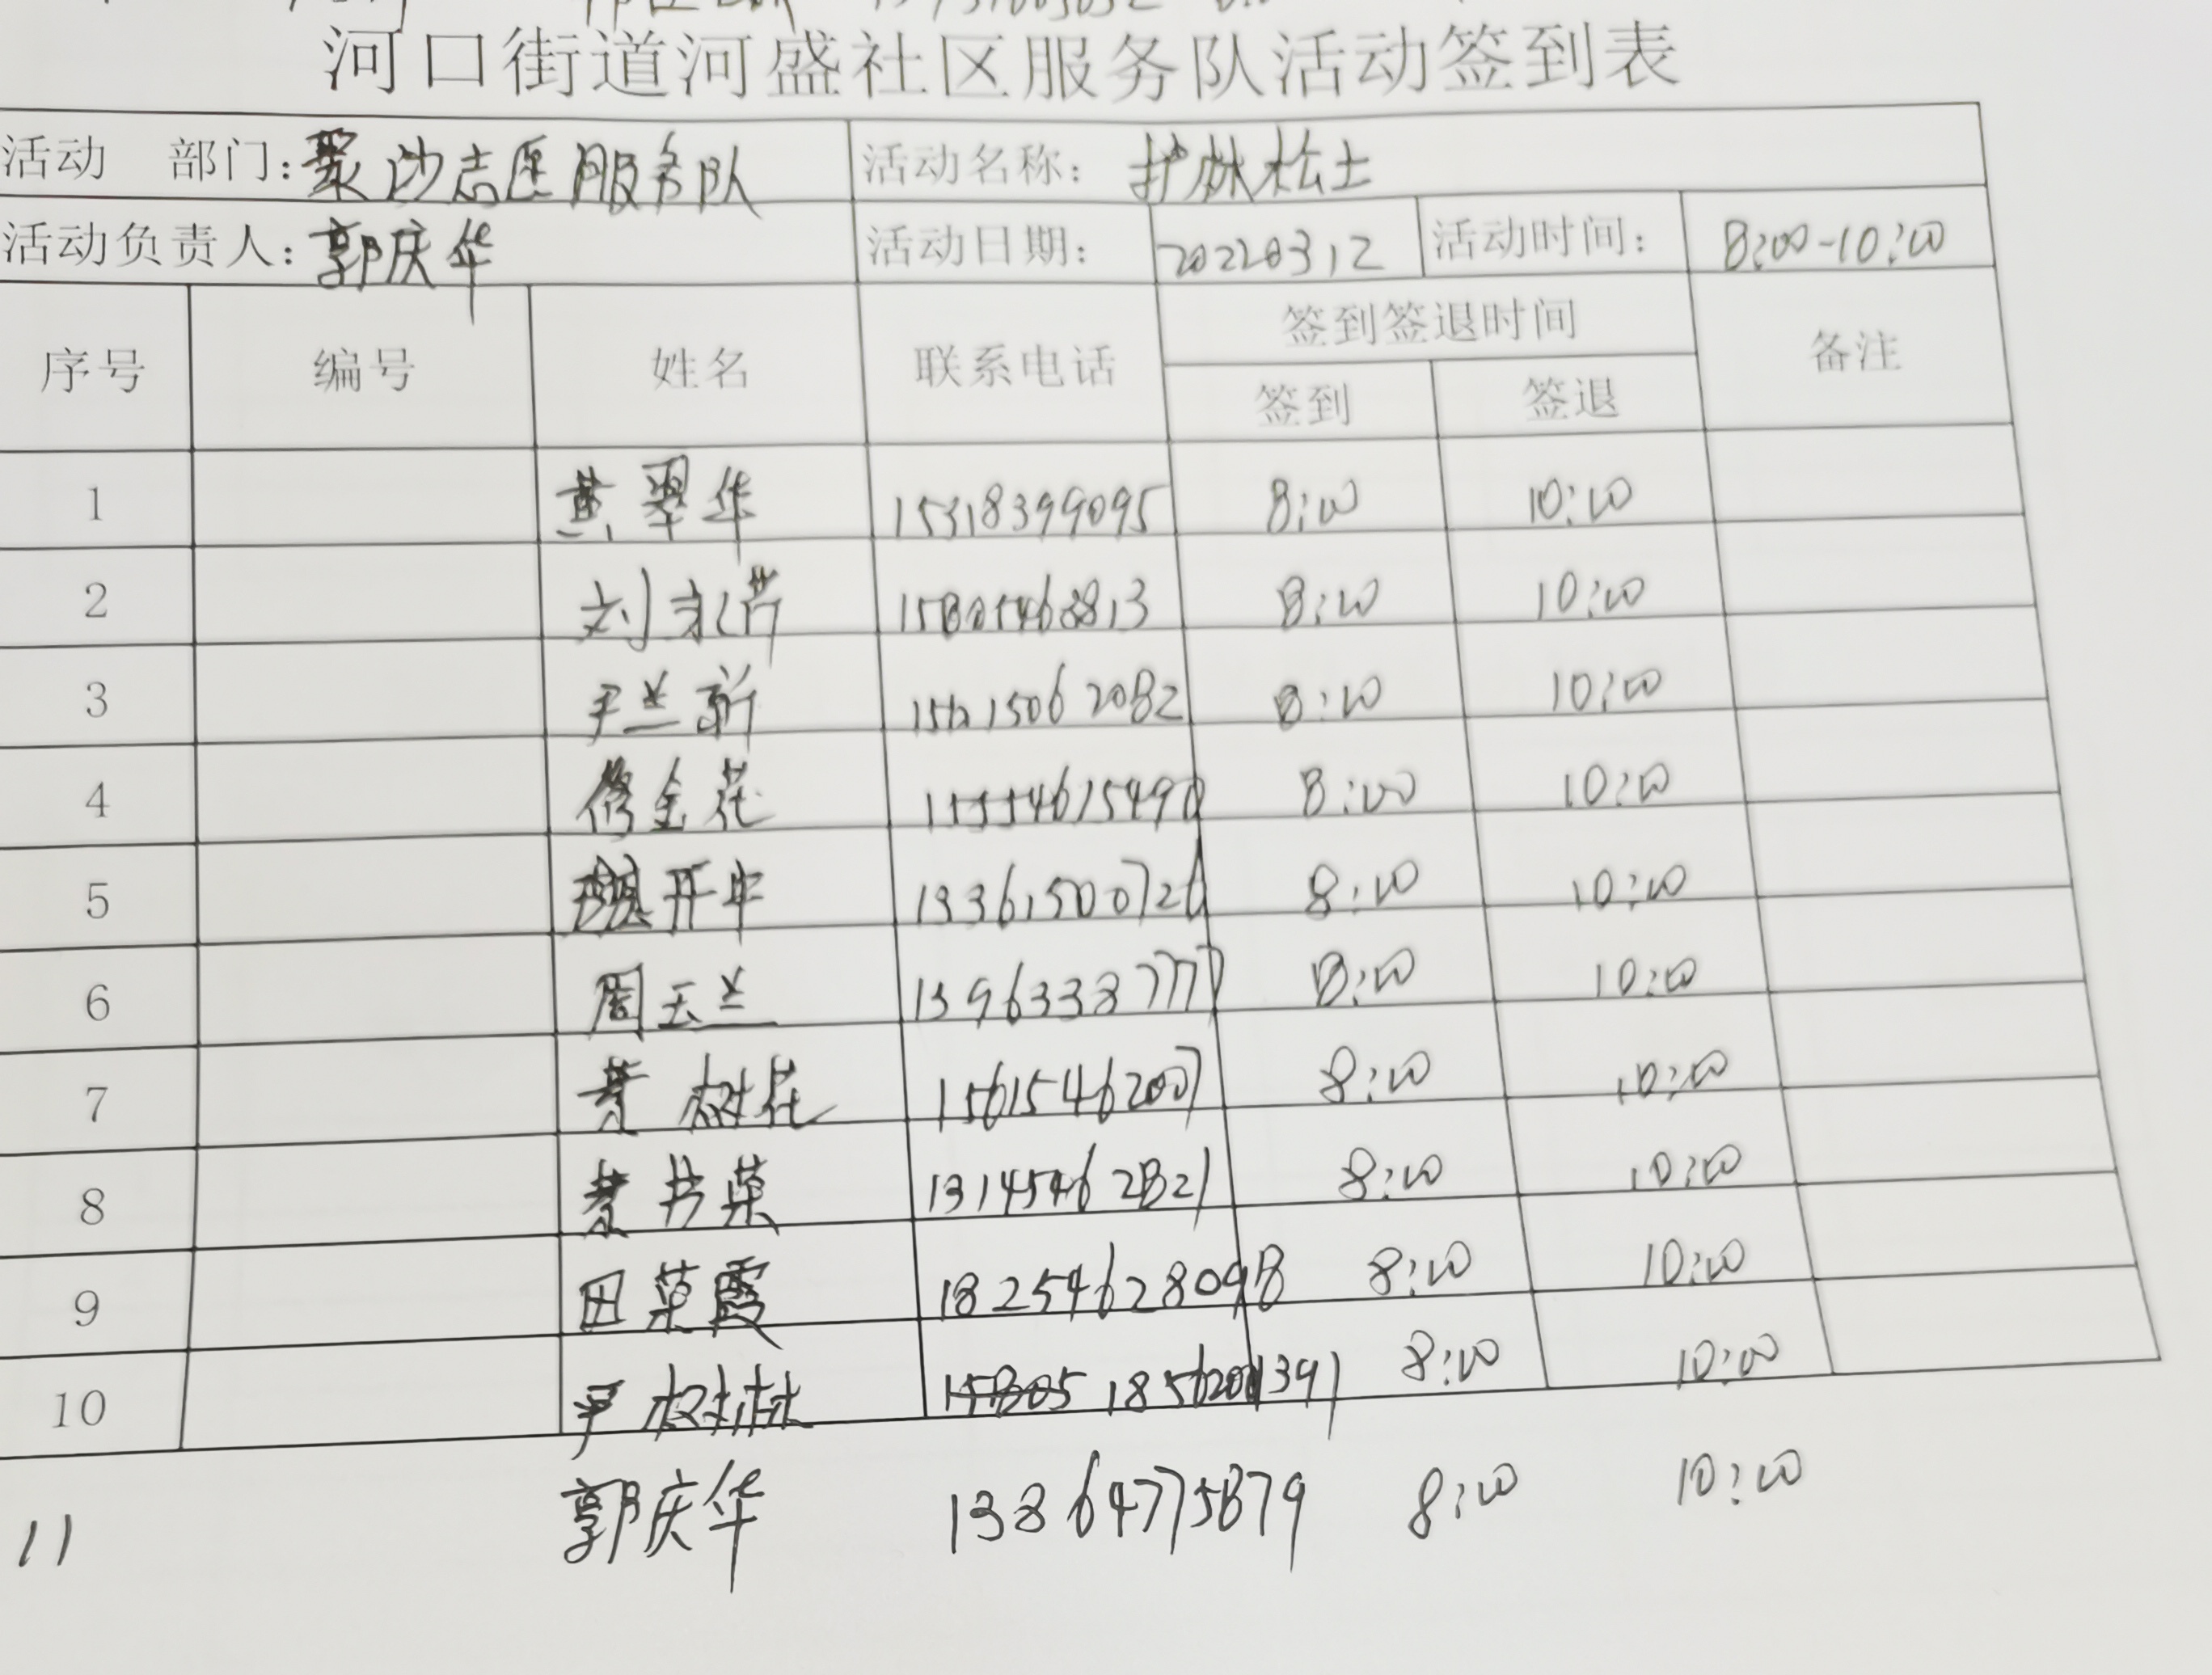 河口街道河盛社区服务队活动签到表
活动 部门：聚沙志愿服务队 活动名称：护林松土
活动负责人：郭庆华 活动日期：20220312 活动时间：8:00-10:00
序号 编号 姓名 联系电话 签到签退时间 备注
签到 签退
1 黄翠华 15318399095 8:00 10:00
2 8:00 10:00
3 尹兰新 8:00 10:00
4 修金花 8:00 10:00
5 13361500726 8:00 10:00
6 周玉兰 13963387777 8:00 10:00
7 树花 15615462007 8:00 10:00
8 13145462821 8:00 10:00
9 田荣霞 18254628098 8:00 10:00
10 尹树林 18562001391 8:00 10:00
11 郭庆华 13864775879 8:00 10:00